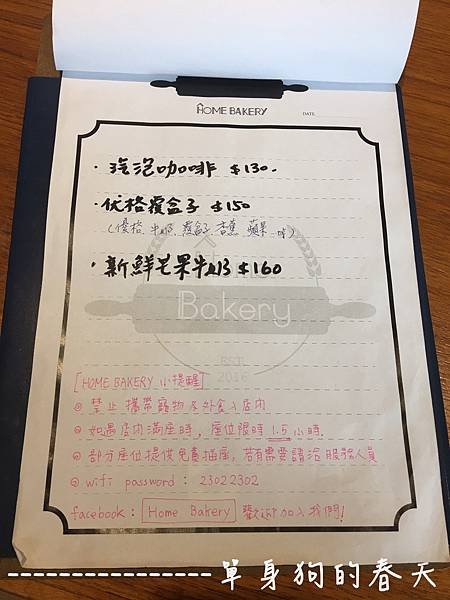 HOME BAKERY DATE
・汽泡咖啡 $130.
・优格覆盆子 $150
(優格、牛奶、覆盆子、香蕉、蘋果
・新鮮芒果牛奶 $160
Bakery
EST.
2016
[HOME BAKERY 小提醒]
◎ 禁止攜帶寵物及外食入店內
◎ 如遇店內滿座時，座位限時 1.5 小時
◎ 部分座位提供免費插座，若有需要請洽服務人員
◎ wifi password : 23022302
facebook : Home Bakery 歡迎加入我們!
---------------單身狗的春天